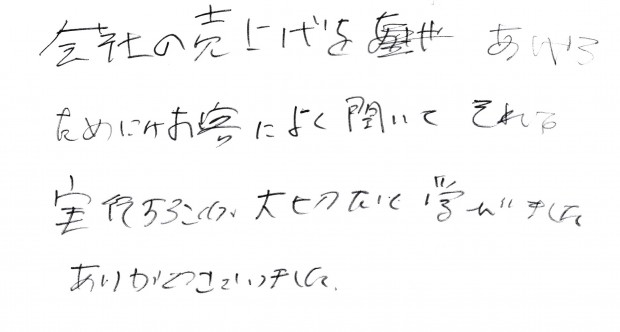 会社の売上げを あげる
ためにはお客によく聞いて それを
実行することが 大切だと 学びました
ありがとうございました。